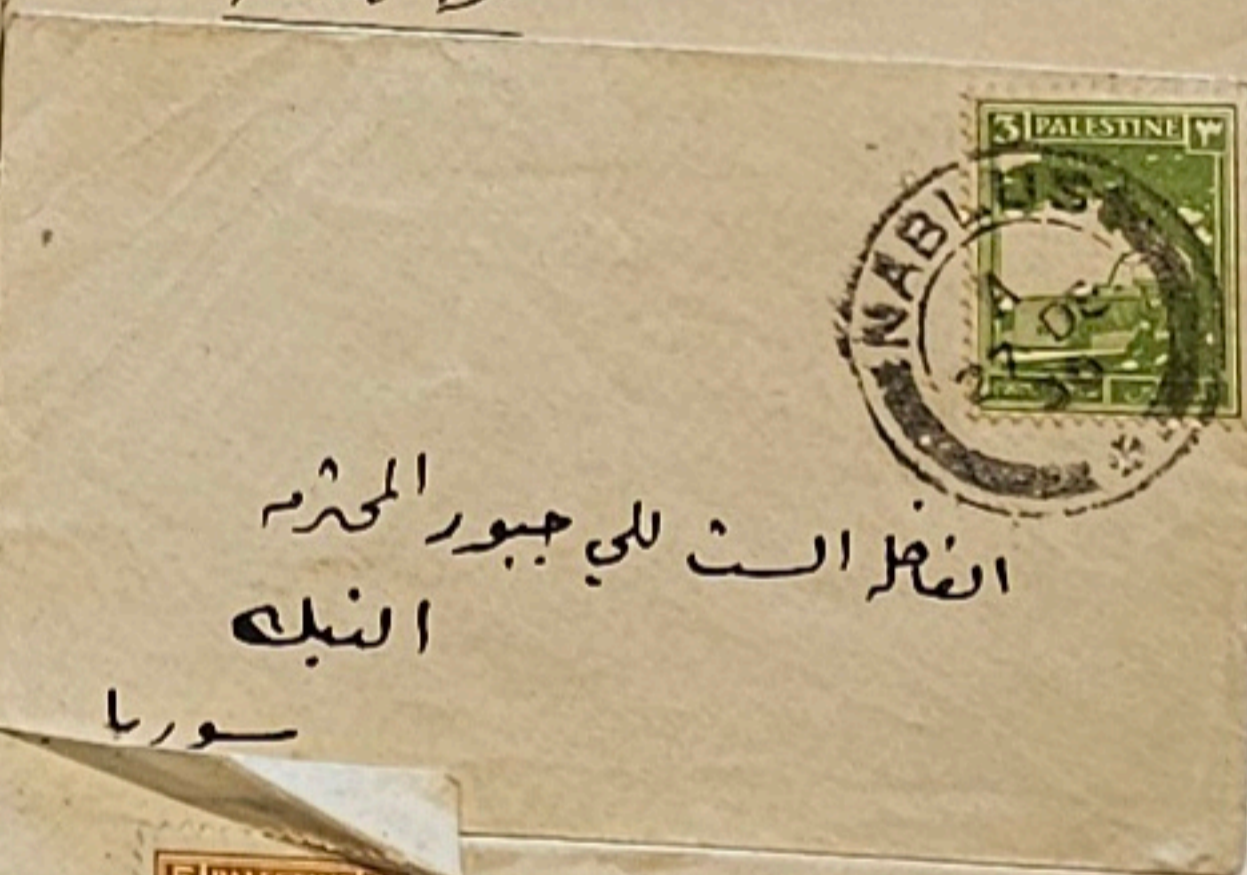 3 PALESTINE ٣
NABLUS
A
27 DE
الفاضله الست للي جبور المحترمه
النبك
سوريا